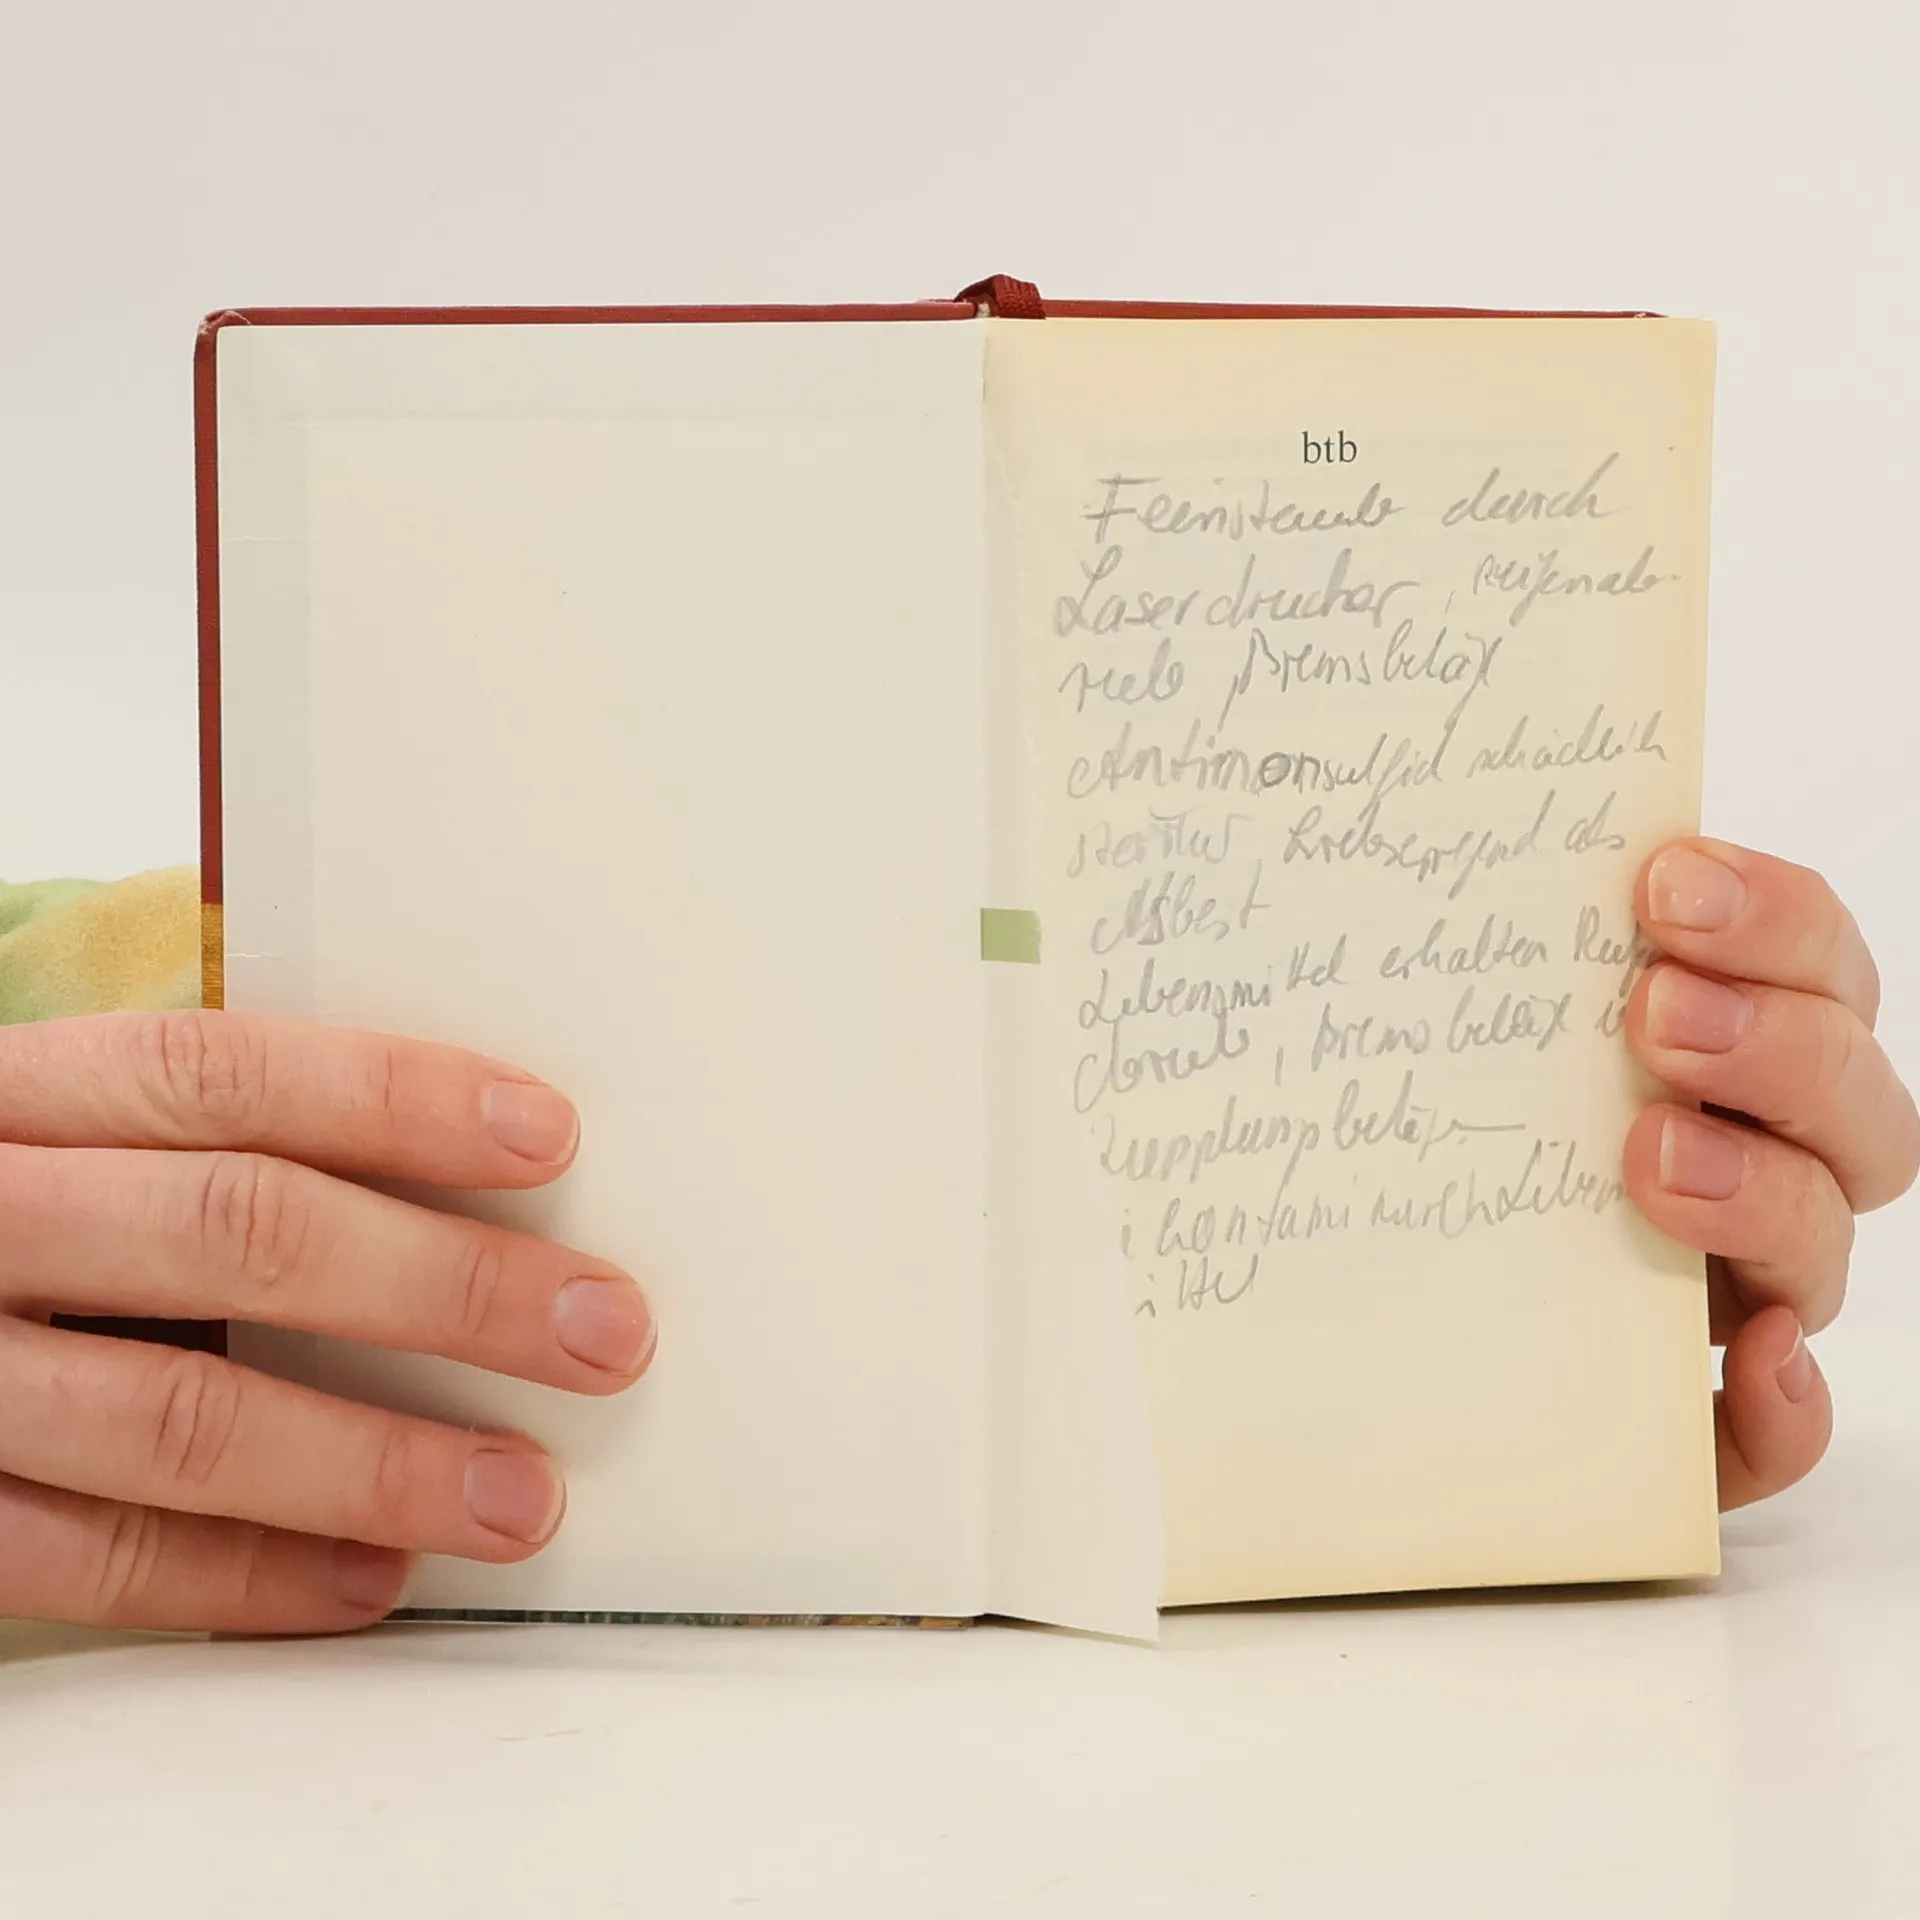 btb
Feinstaub durch
Laserdrucker, Reifenab-
rieb, Bremsbeläg
Antimonsulfid schädlich
krebserregend als
Asbest
Lebensmittel erhalten
abrieb, Bremsbeläg
Kupplungsbeläge
kontami durch Leben
ittel